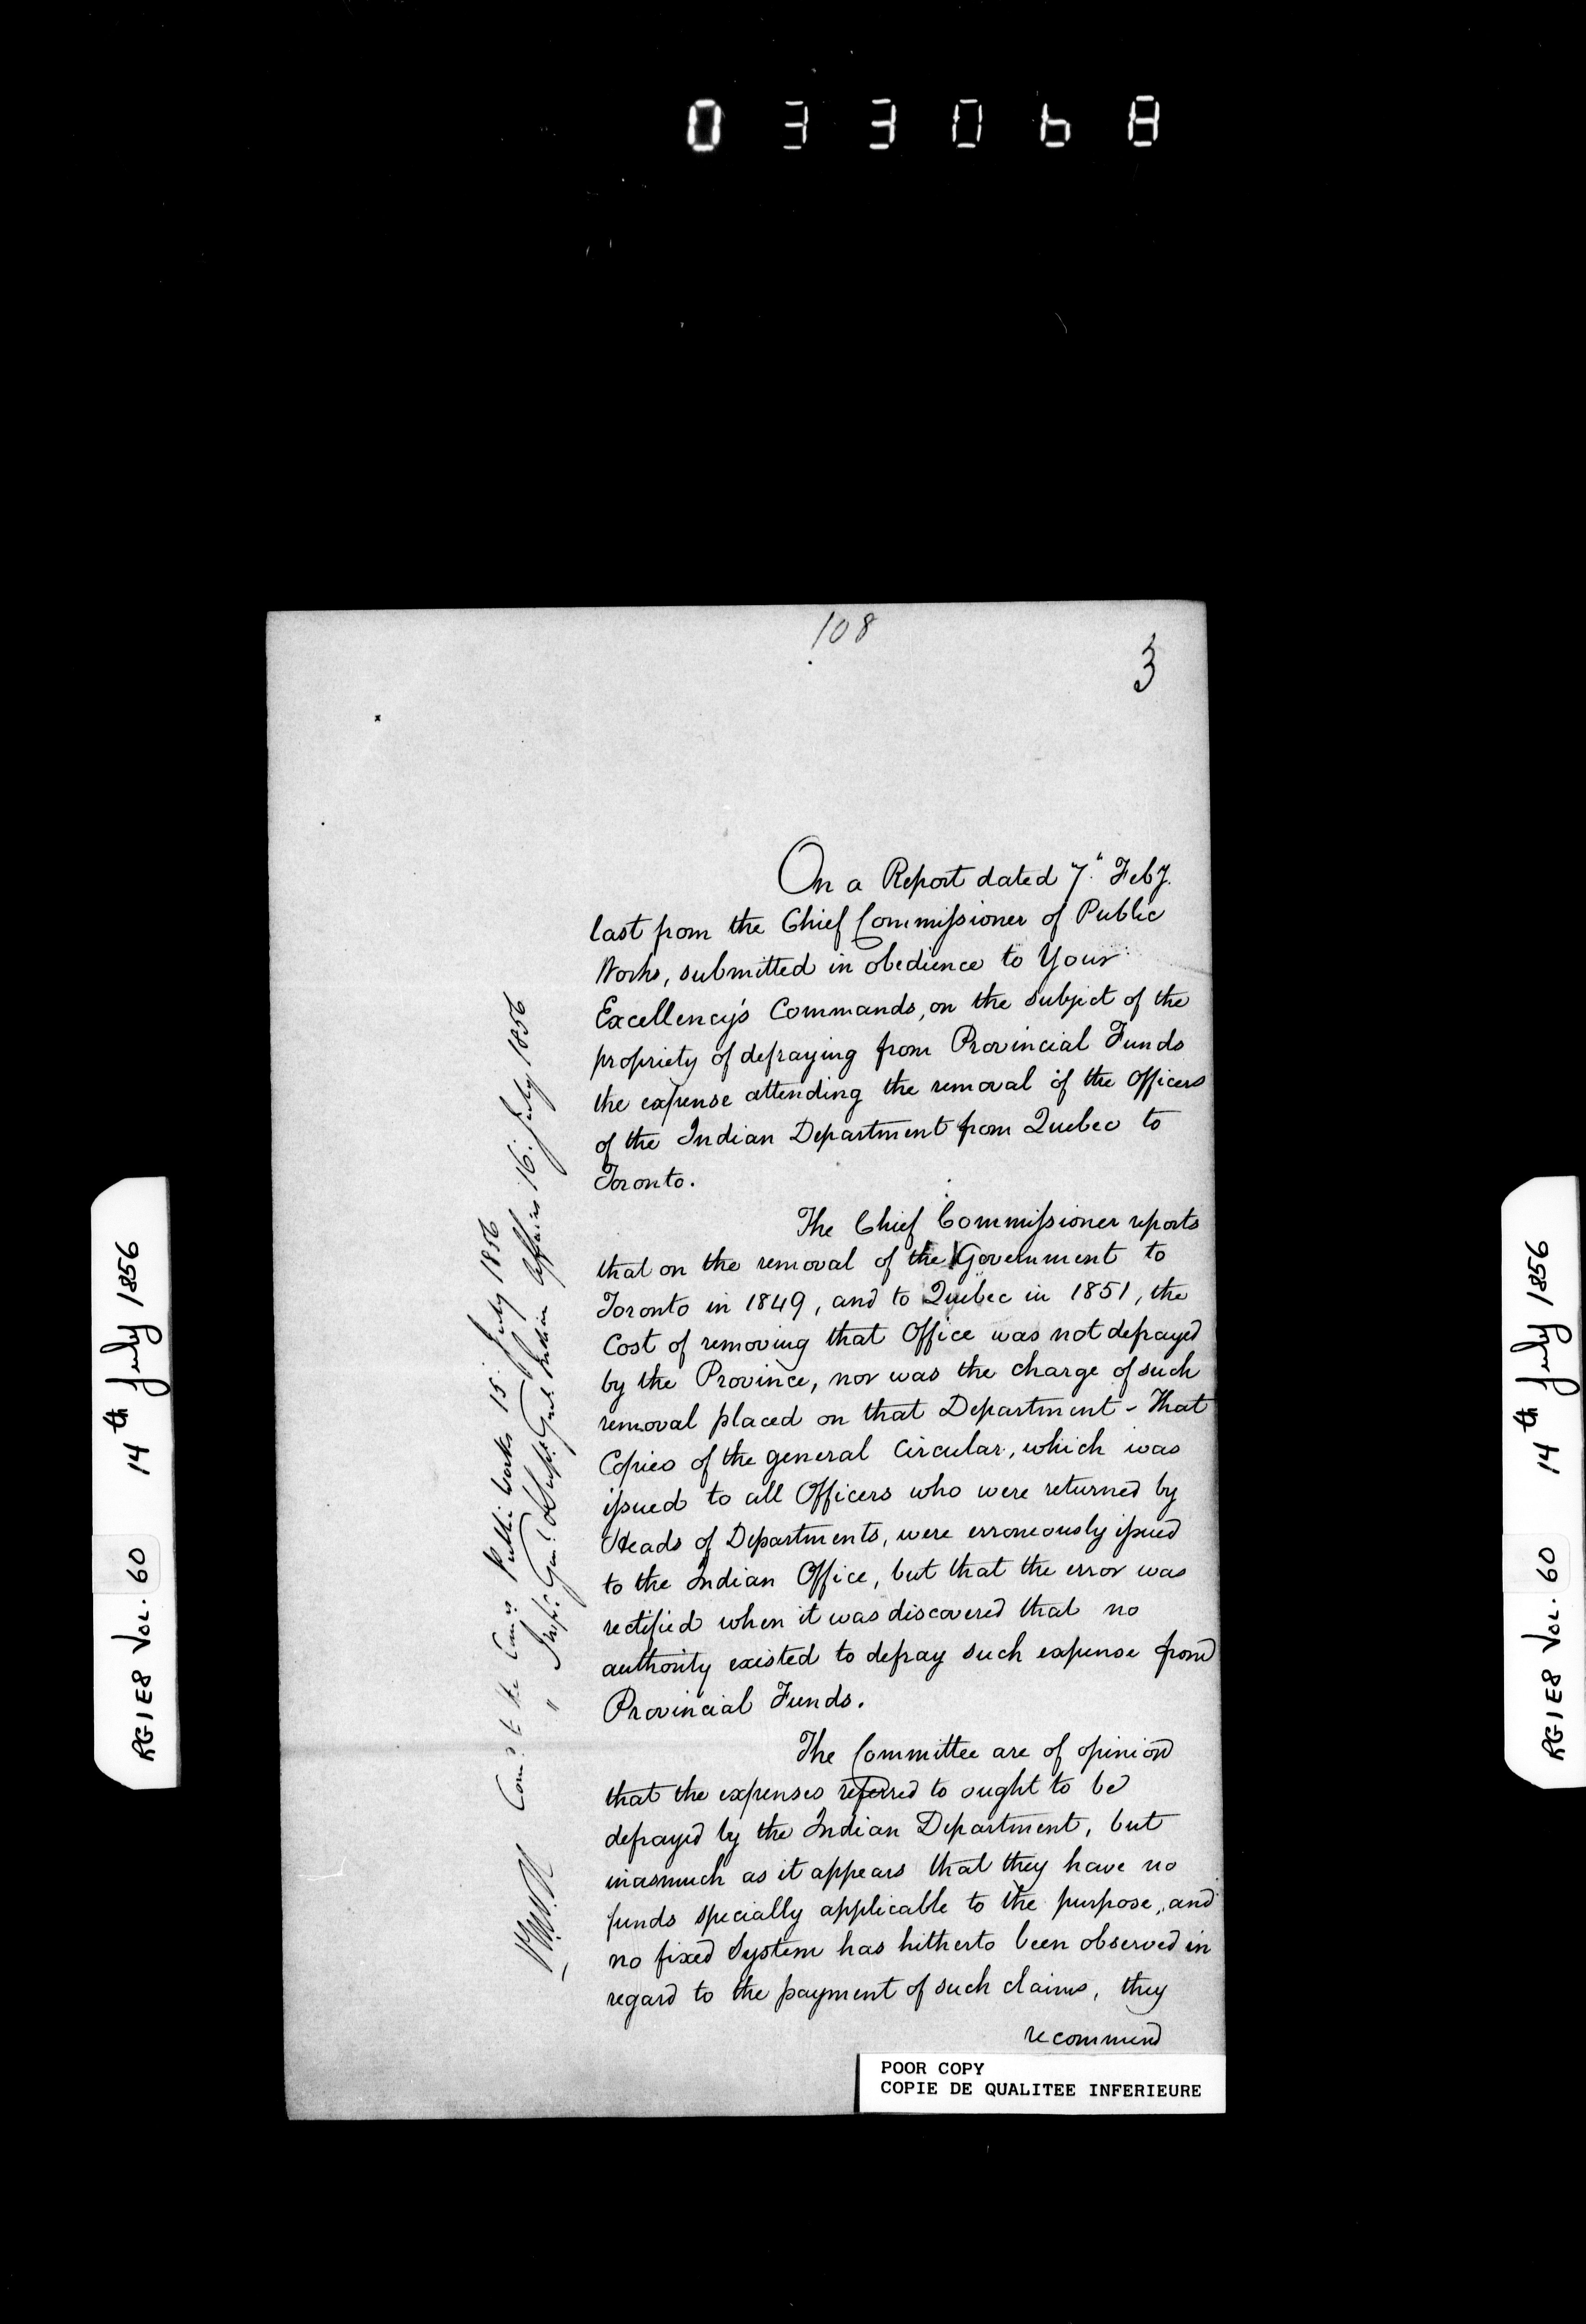 033068
108
3
On a Report dated 7th Feby.
last from the Chief Commissioner of Public
Works, submitted in obedience to Your
Excellency's Commands, on the subject of the
propriety of defraying from Provincial Funds
the expense attending the removal of the Officers
of the Indian Department from Quebec to
Toronto.
The Chief Commissioner reports
that on the removal of the Government to
Toronto in 1849, and to Quebec in 1851, the
Cost of removing that Office was not defrayed
by the Province, nor was the charge of such
removal placed on that Department - That
Copies of the general Circular, which was
issued to all Officers who were returned by
Heads of Departments, were erroneously issued
to the Indian Office, but that the error was
rectified when it was discovered that no
authority existed to defray such expense from
Provincial Funds.
The Committee are of opinion
that the expenses referred to ought to be
defrayed by the Indian Department, but
inasmuch as it appears that they have no
funds specially applicable to the purpose, and
no fixed System has hitherto been observed in
regard to the payment of such claims, they
recommend
Com. to the Comrs Public Works 15. July 1856
" Insp. Genl. & Supt. Genl. Indian Affairs 16. July 1856
POOR COPY
COPIE DE QUALITEE INFERIEURE
RG1E8 VOL. 60 14th July 1856
RG1E8 VOL. 60 14th July 1856